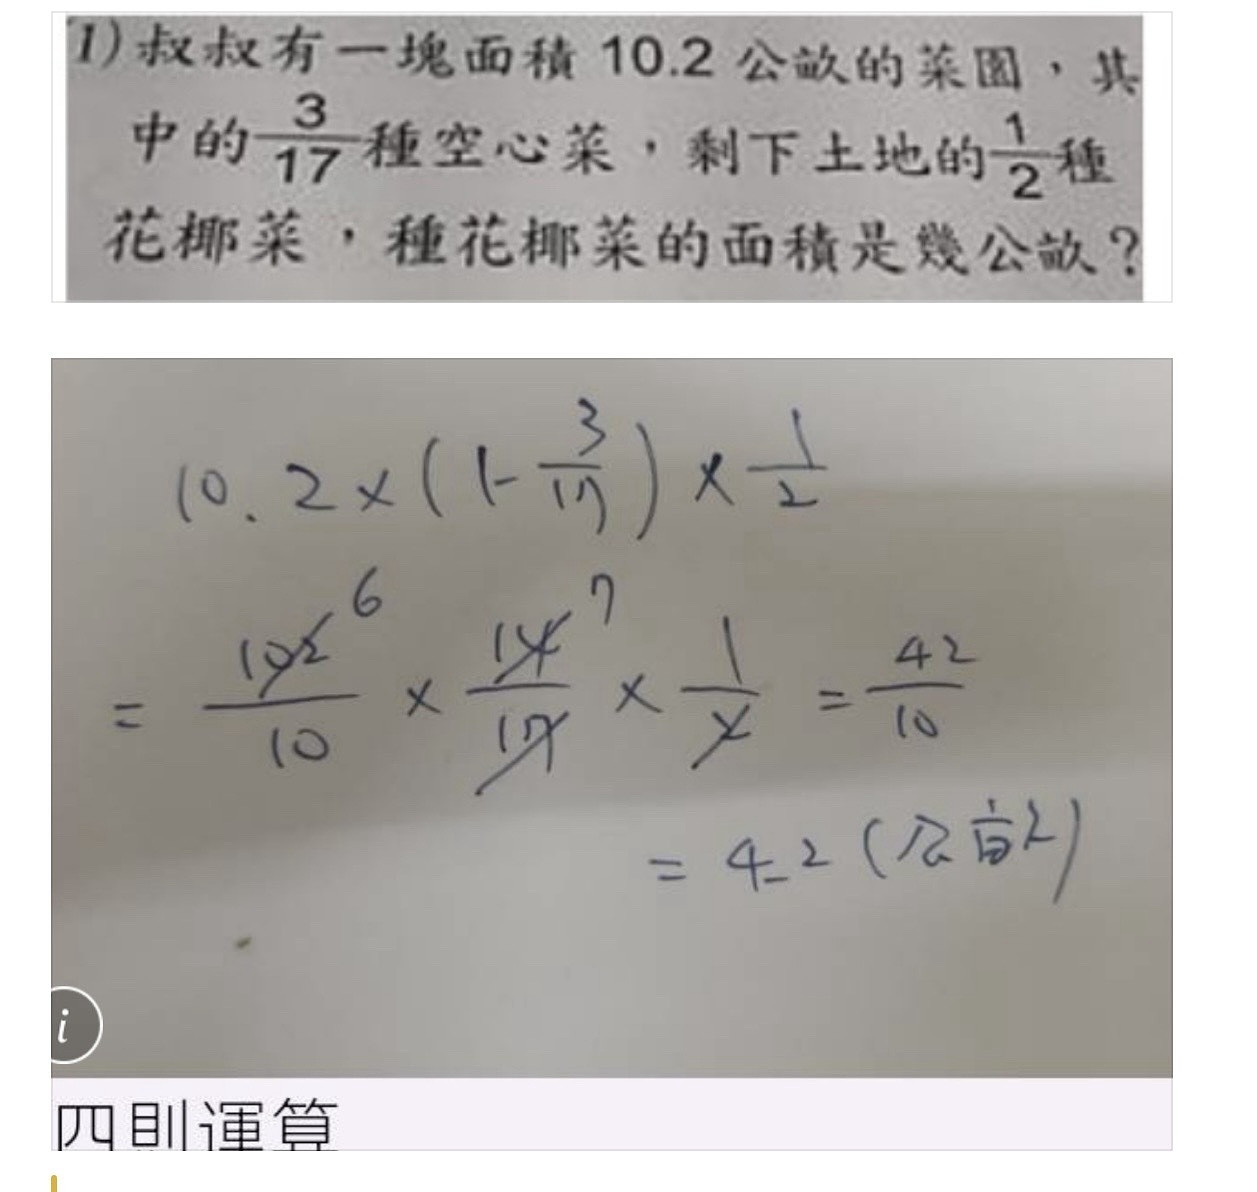 1)叔叔有一塊面積 10.2 公畝的菜園，其
中的 3/17 種空心菜，剩下土地的 1/2 種
花椰菜，種花椰菜的面積是幾公畝？
10.2×(1-3/17)×1/2
= 102/10 6 × 14/17 7 × 1/2 = 42/10
= 4.2 (公畝)
i
四則運算